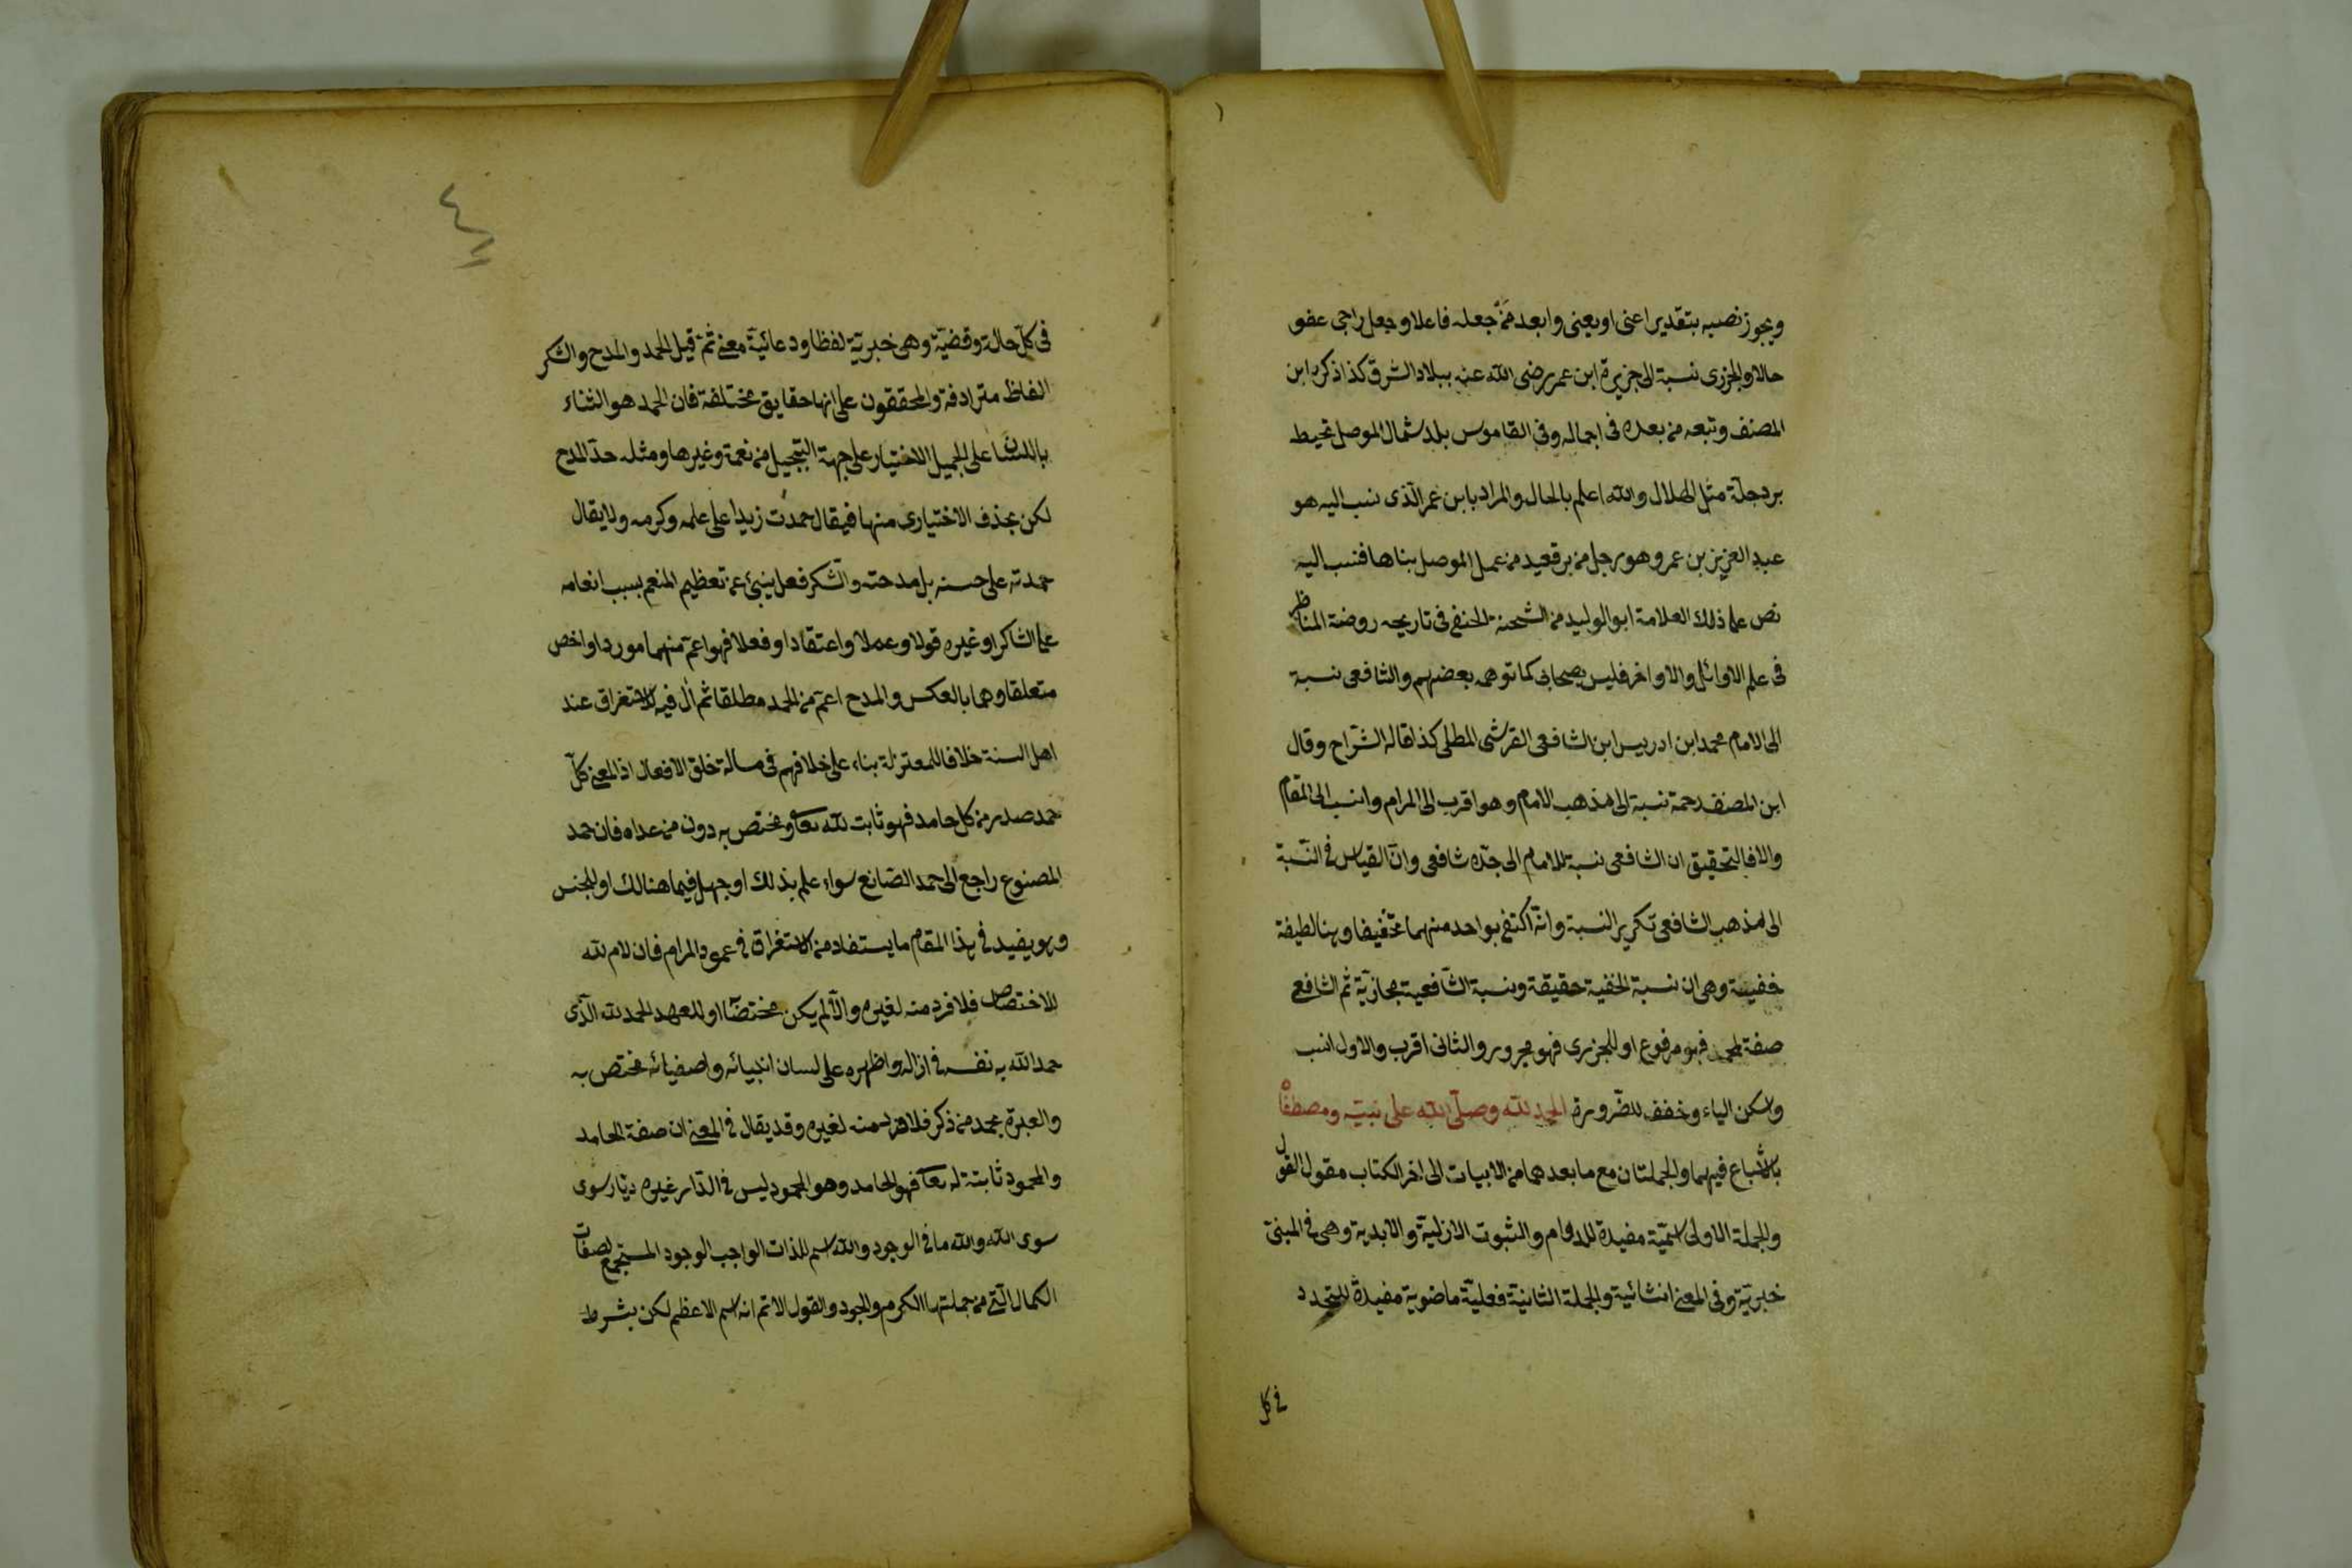 ويجوز نصبه بتقدير اعنى او يعنى وابعد من جعله فاعلا وجعل راجى عفو
حالا والجزرى نسبة الى جزيرة ابن عمر رضى الله عنه ببلاد الشرق كذا ذكره ابن
المصنف وتبعه من بعده فى اجماله وفى القاموس بلد شمال الموصل تحيط
بردجلة مثل الهلال والله اعلم بالحال والمراد بابن عمر الذى نسب اليه هو
عبد العزيز بن عمر وهو رجل من برقعيد من عمل الموصل بناها فنسب اليه
نص على ذلك العلامة ابو الوليد من الشحنة الحنفى فى تاريخه روضة المناظر
فى علم الاوائل والاواخر فليس بصحابى كما توهمه بعضهم والشافعى نسبة
الى الامام محمد ابن ادريس ابن الشافعى القرشى المطلى كذا قاله الشراح وقال
ابن المصنف رحمة نسبة الى مذهب الامام وهو اقرب الى المرام وانسب الى المقام
والا فالتحقيق ان الشافعى نسبة للامام الى جده شافعى وان القياس فى النسبة
الى مذهب الشافعى تكرير النسبة وانه اكتفى بواحد منهما تخفيفا وهنا لطيفة
خفيه وهى ان نسبة الحنفية حقيقة ونسبة الشافعية مجازية ثم الشافعى
صفة لمحمد فهو مرفوع او للجزرى فهو مجرور والثانى اقرب والاول انسب
واسكن الياء وخفف للضرورة الحمد لله وصلى الله على نبيه ومصطفاه
بالاشباع فيهما والجملتان مع ما بعدهما من الابيات الى اخر الكتاب مقول القول
والجملة الاولى اسمية مفيدة للدوام والثبوت الازلية والابدية وهى فى المبنى
خبرية وفى المعنى انشائية والجملة الثانية فعلية ماضوية مفيدة للتجدد
فى كل
فى كل حالة وقضية وهى خبرية لفظا ودعائية معنى ثم قيل الحمد والمدح والشكر
الفاظ مترادفة والمحققون على انها حقايق مختلفة فان الحمد هو الثناء
باللسان على الجميل الاختيار على جهة التبجيل من نعمة وغيرها ومثله حد المدح
لكن بحذف الاختيارى منها فيقال حمدت زيدا على علمه وكرمه ولا يقال
حمدته على حسنه بل مدحته والشكر فعل ينبئ عن تعظيم المنعم بسبب انعامه
على الشاكر او غيره قولا وعملا واعتقادا وفعلا فهو اعم منهما موردا واخص
متعلقا وهما بالعكس والمدح اعم من الحمد مطلقا ثم ال فيه للاستغراق عند
اهل السنة خلافا للمعتزلة بناء على خلافهم فى مسالة خلق الافعال اذ المعنى كل
حمد صدر من كل حامد فهو ثابت لله تعا ومختص به دون من عداه فان حمد
المصنوع راجع الى حمد الصانع سواء علم بذلك او جهل فيما هنالك او للجنس
وهو يفيد فى هذا المقام ما يستفاد من الاستغراق فى عموم المرام فان لام لله
للاختصاص فلا فرد منه لغيره والا لم يكن مختصا او للعهد الحمد لله الذى
حمد الله به نفسه فى ازاله واظهره على لسان انبيائه واصفيائه مختص به
والعبرة بحمد من ذكر فلا فرد منه لغيره وقد يقال فى المعنى ان صفة الحامد
والمحمود ثابتة له تعا فهو الحامد وهو المحمود ليس فى الدار غيره ديار سوى
سوى الله والله ما فى الوجود والله اسم للذات الواجب الوجود المستجمع لصفات
الكمال التى من جملتها الكرم والجود والقول الاتم انه اسم الاعظم لكن بشرط